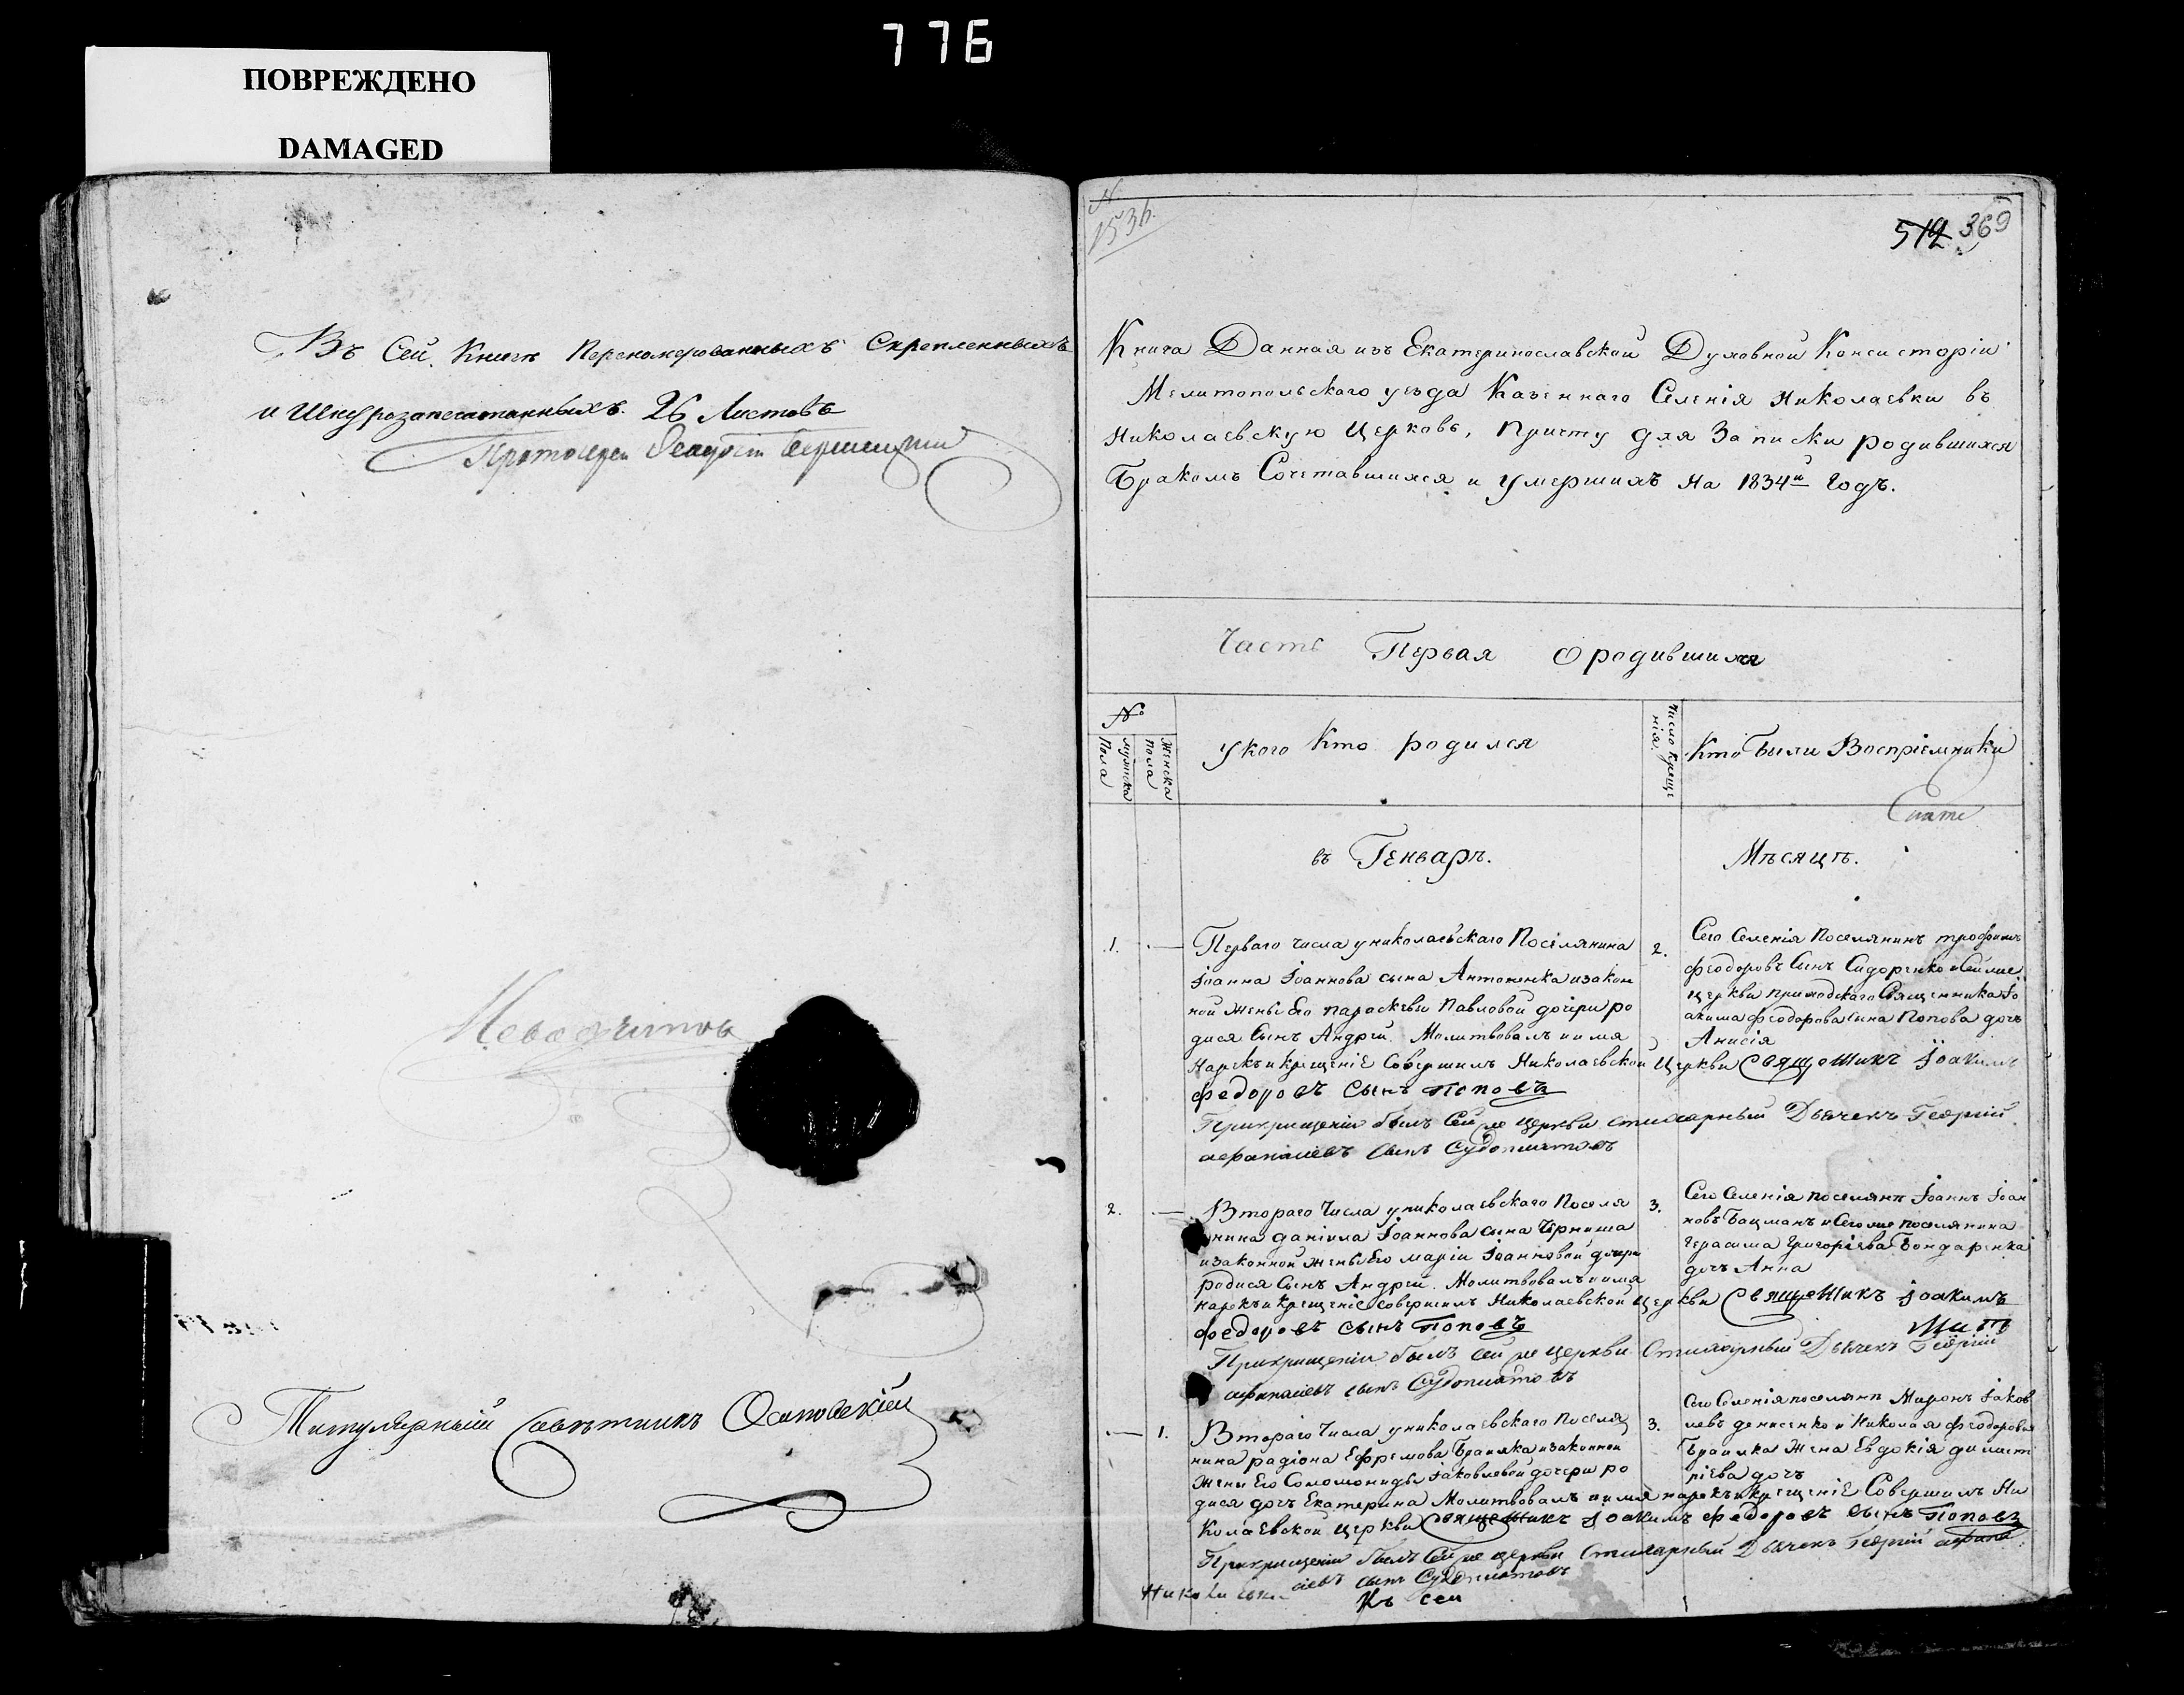 776
ПОВРЕЖДЕНО
DAMAGED
Въ Сей Книгѣ Перенумерованныхъ Скрепленныхъ
и Шнурозапечатанныхъ 26 Листовъ
Протоиерей
Титулярный Советникъ Осиповскій
N
1536.
512 369
Книга Данная изъ Екатеринославской Духовной Консисторіи
Мелитопольскаго уезда Казеннаго Селенія Николаевки въ
Николаевскую Церковь, Причту для Записки родившихся
Бракомъ Сочетавшихся и Умершихъ на 1834й Годъ.
Часть Первая о родившихся
№
мужеска Пола
Женска пола
У кого Кто родился
Число Креще
нія.
Кто были Воспріемники
въ Генварѣ.
Мѣсяцѣ.
1. — Перваго числа у николаевскаго Поселянина
Іоанна Іоаннова сына Антоненка и закон
ной жены Его параскевы Павловой дочери ро
дися Сынъ Андрей. Молитвовалъ и имя
Нарекъ и крещеніе Совершилъ Николаевской Церкви Священникъ Іоакимъ
Федоровъ Сынъ Поповъ
При крещеніи былъ Сей же церкви стихарный Дьячекъ Георгій
афанасіевъ сынъ
2. Сего Селенія Поселянинъ трофимъ
феодоровъ Сынъ Сидоренко и Сей же
церкви приходскаго Священника Іо
акима феодорова сына Попова дочь
Анисія
2. — Втораго Числа у николаевскаго Поселя
нина даніила Іоаннова сына Черниша
и законной жены Его маріи Іоанновой дочери
родися Сынъ Андрей. Молитвовалъ и имя
нарекъ и крещеніе совершилъ Николаевской церкви Священникъ Іоакимъ
федоровъ сынъ Поповъ
При крещеніи былъ сей же церкви Стихарный Дьячекъ Георгій
афанасіевъ сынъ
3. Сего Селенія поселянъ Іоаннъ Іоан
новъ Бацманъ и Сего же поселянина
Герасима Григорієва Бондаренка
дочь Анна
— 1. Втораго Числа у николаевскаго поселя
нина радіона Ефремова Браилка и законной
жены Его Соломониды Іаковлевой дочери ро
дися дочь Екатерина Молитвовалъ и имя нарекъ и крещеніе Совершилъ Ни
Колаевской церкви Священникъ Іоакимъ федоровъ сынъ Поповъ
При крещеніи былъ Сей же церкви Стихарный Дьячекъ Георгій афана
сіевъ сынъ
3. Сего Селенія поселянъ Миронъ Іаков
левъ денисенко и Николая феодорова
Браилка жена Евдокія димит
ріева дочь
Къ сей